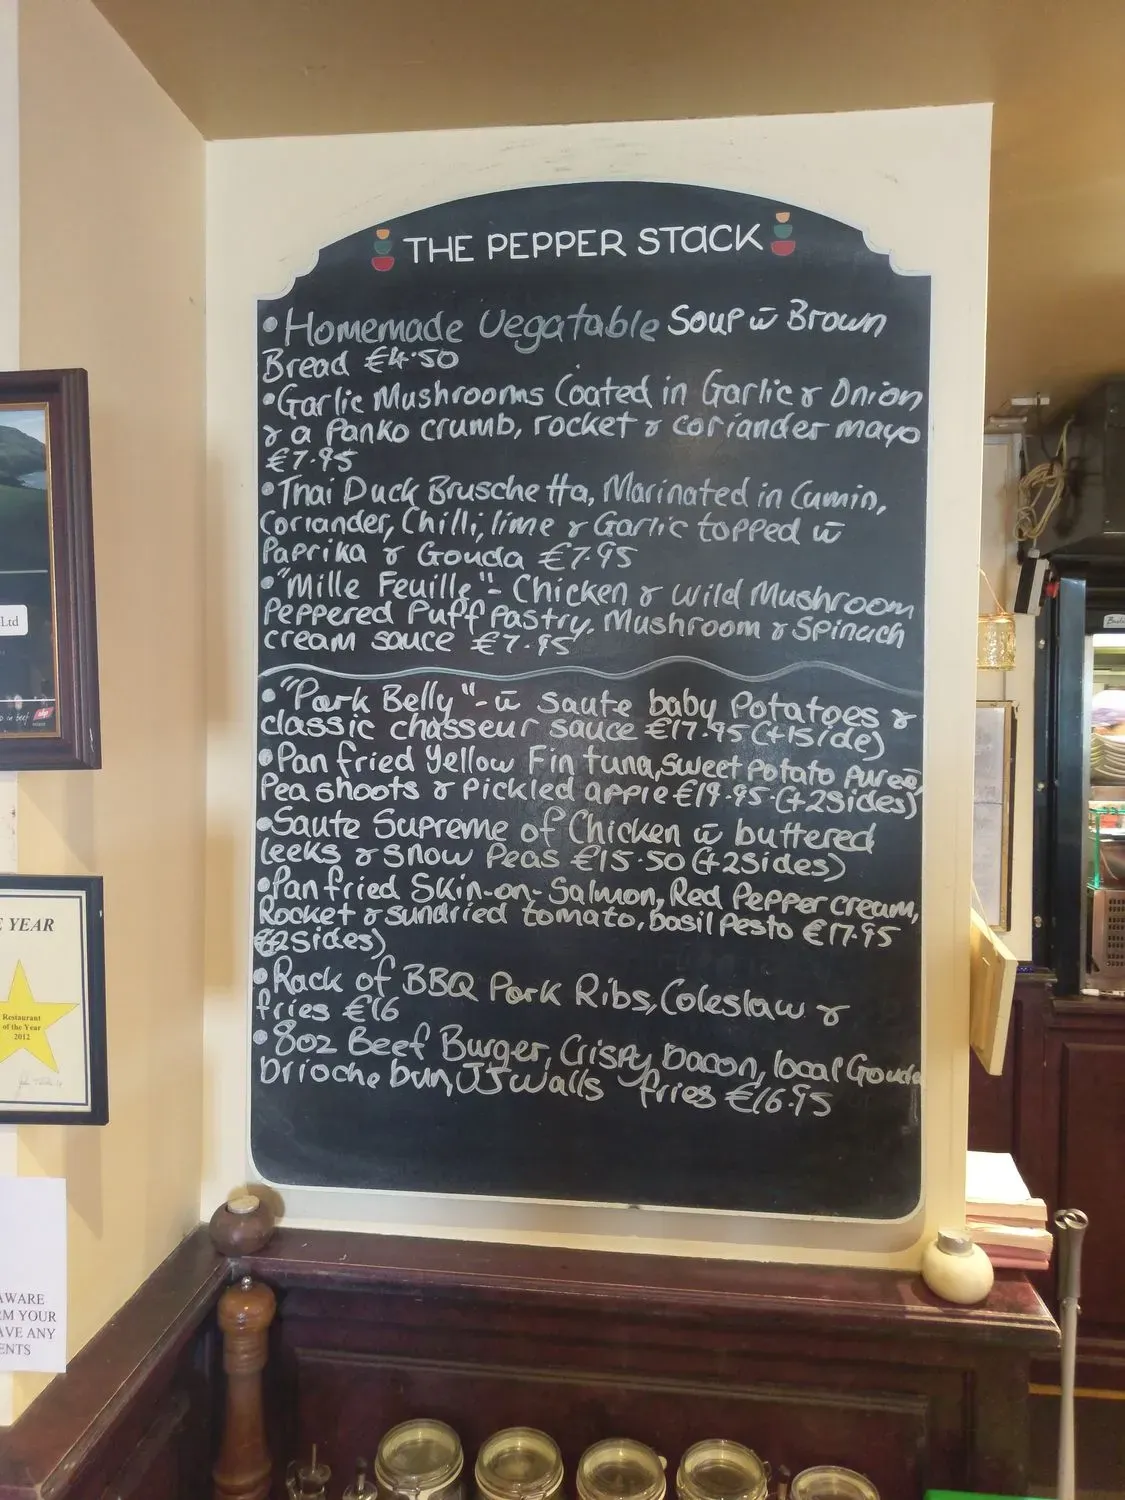 THE PEPPER STACK
• Homemade Vegatable Soup w̄ Brown
Bread €4.50
• Garlic Mushrooms Coated in Garlic & Onion
& a Panko crumb, rocket & coriander mayo
€7.95
• Thai Duck Bruschetta, Marinated in Cumin,
Coriander, Chilli, lime & Garlic topped w̄
Paprika & Gouda €7.95
• "Mille Feuille" - Chicken & Wild Mushroom
Peppered Puff Pastry. Mushroom & Spinach
cream sauce €7.95
• "Pork Belly" - w̄ saute baby Potatoes &
classic chasseur sauce €17.95 (+1side)
• Pan fried Yellow Fin tuna, sweet potato pureé,
Pea shoots & pickled apple €19.95 (+2sides)
• Saute Supreme of Chicken w̄ buttered
leeks & Snow Peas €15.50 (+2sides)
• Pan fried Skin-on-Salmon, Red Pepper cream,
Rocket & sundried tomato, basil Pesto €17.95
(+2sides)
• Rack of BBQ Pork Ribs, Coleslaw &
fries €16
• 8oz Beef Burger, Crispy bacon, local Gouda
brioche bun, JJ Walls fries €16.95
Ltd
d in beef
abp
E YEAR
Restaurant
of the Year
2012
AWARE
RM YOUR
AVE ANY
ENTS